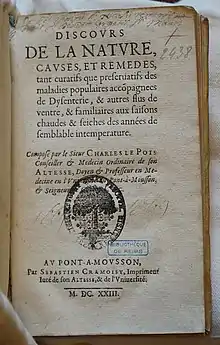 2438
DISCOVRS
DE LA NATVRE,
CAVSES, ET REMEDES,
tant curatifs que preseruatifs des
maladies populaires accõpagnees
de Dysenterie, & autres flus de
ventre, & familiaires aux saisons
chaudes & seiches des années de
semblable intemperature.
Composé par le Sieur CHARLES LE POIS
Conseiller & Medecin Ordinaire de son
ALTESSE, Doyen & Professeur en Me-
decine en l' Pont-à-Mousson,
& Seigneur
BIBLIOTHEQUE
AV PONT-A-MOVSSON,
Par SEBASTIEN CRAMOISY, Imprimeur
Iuré de son ALTESSE, & de l'Vniuersité.
M. DC. XXIII.